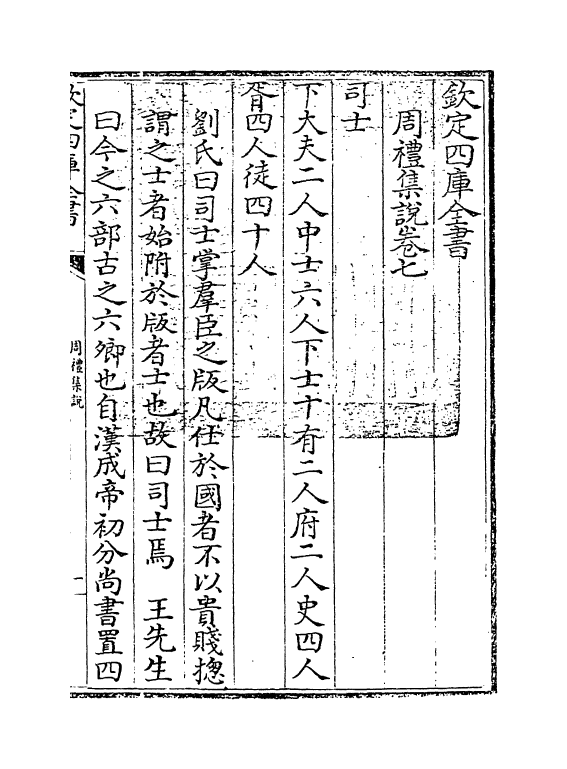 欽定四庫全書
周禮集說卷七
司士
下大夫二人中士六人下士十有二人府二人史四人
胥四人徒四十人
劉氏曰司士掌羣臣之版凡仕於國者不以貴賤摠
謂之士者始附於版者士也故曰司士焉　王先生
曰今之六部古之六卿也自漢成帝初分尚書置四
欽定四庫全書
周禮集說
一